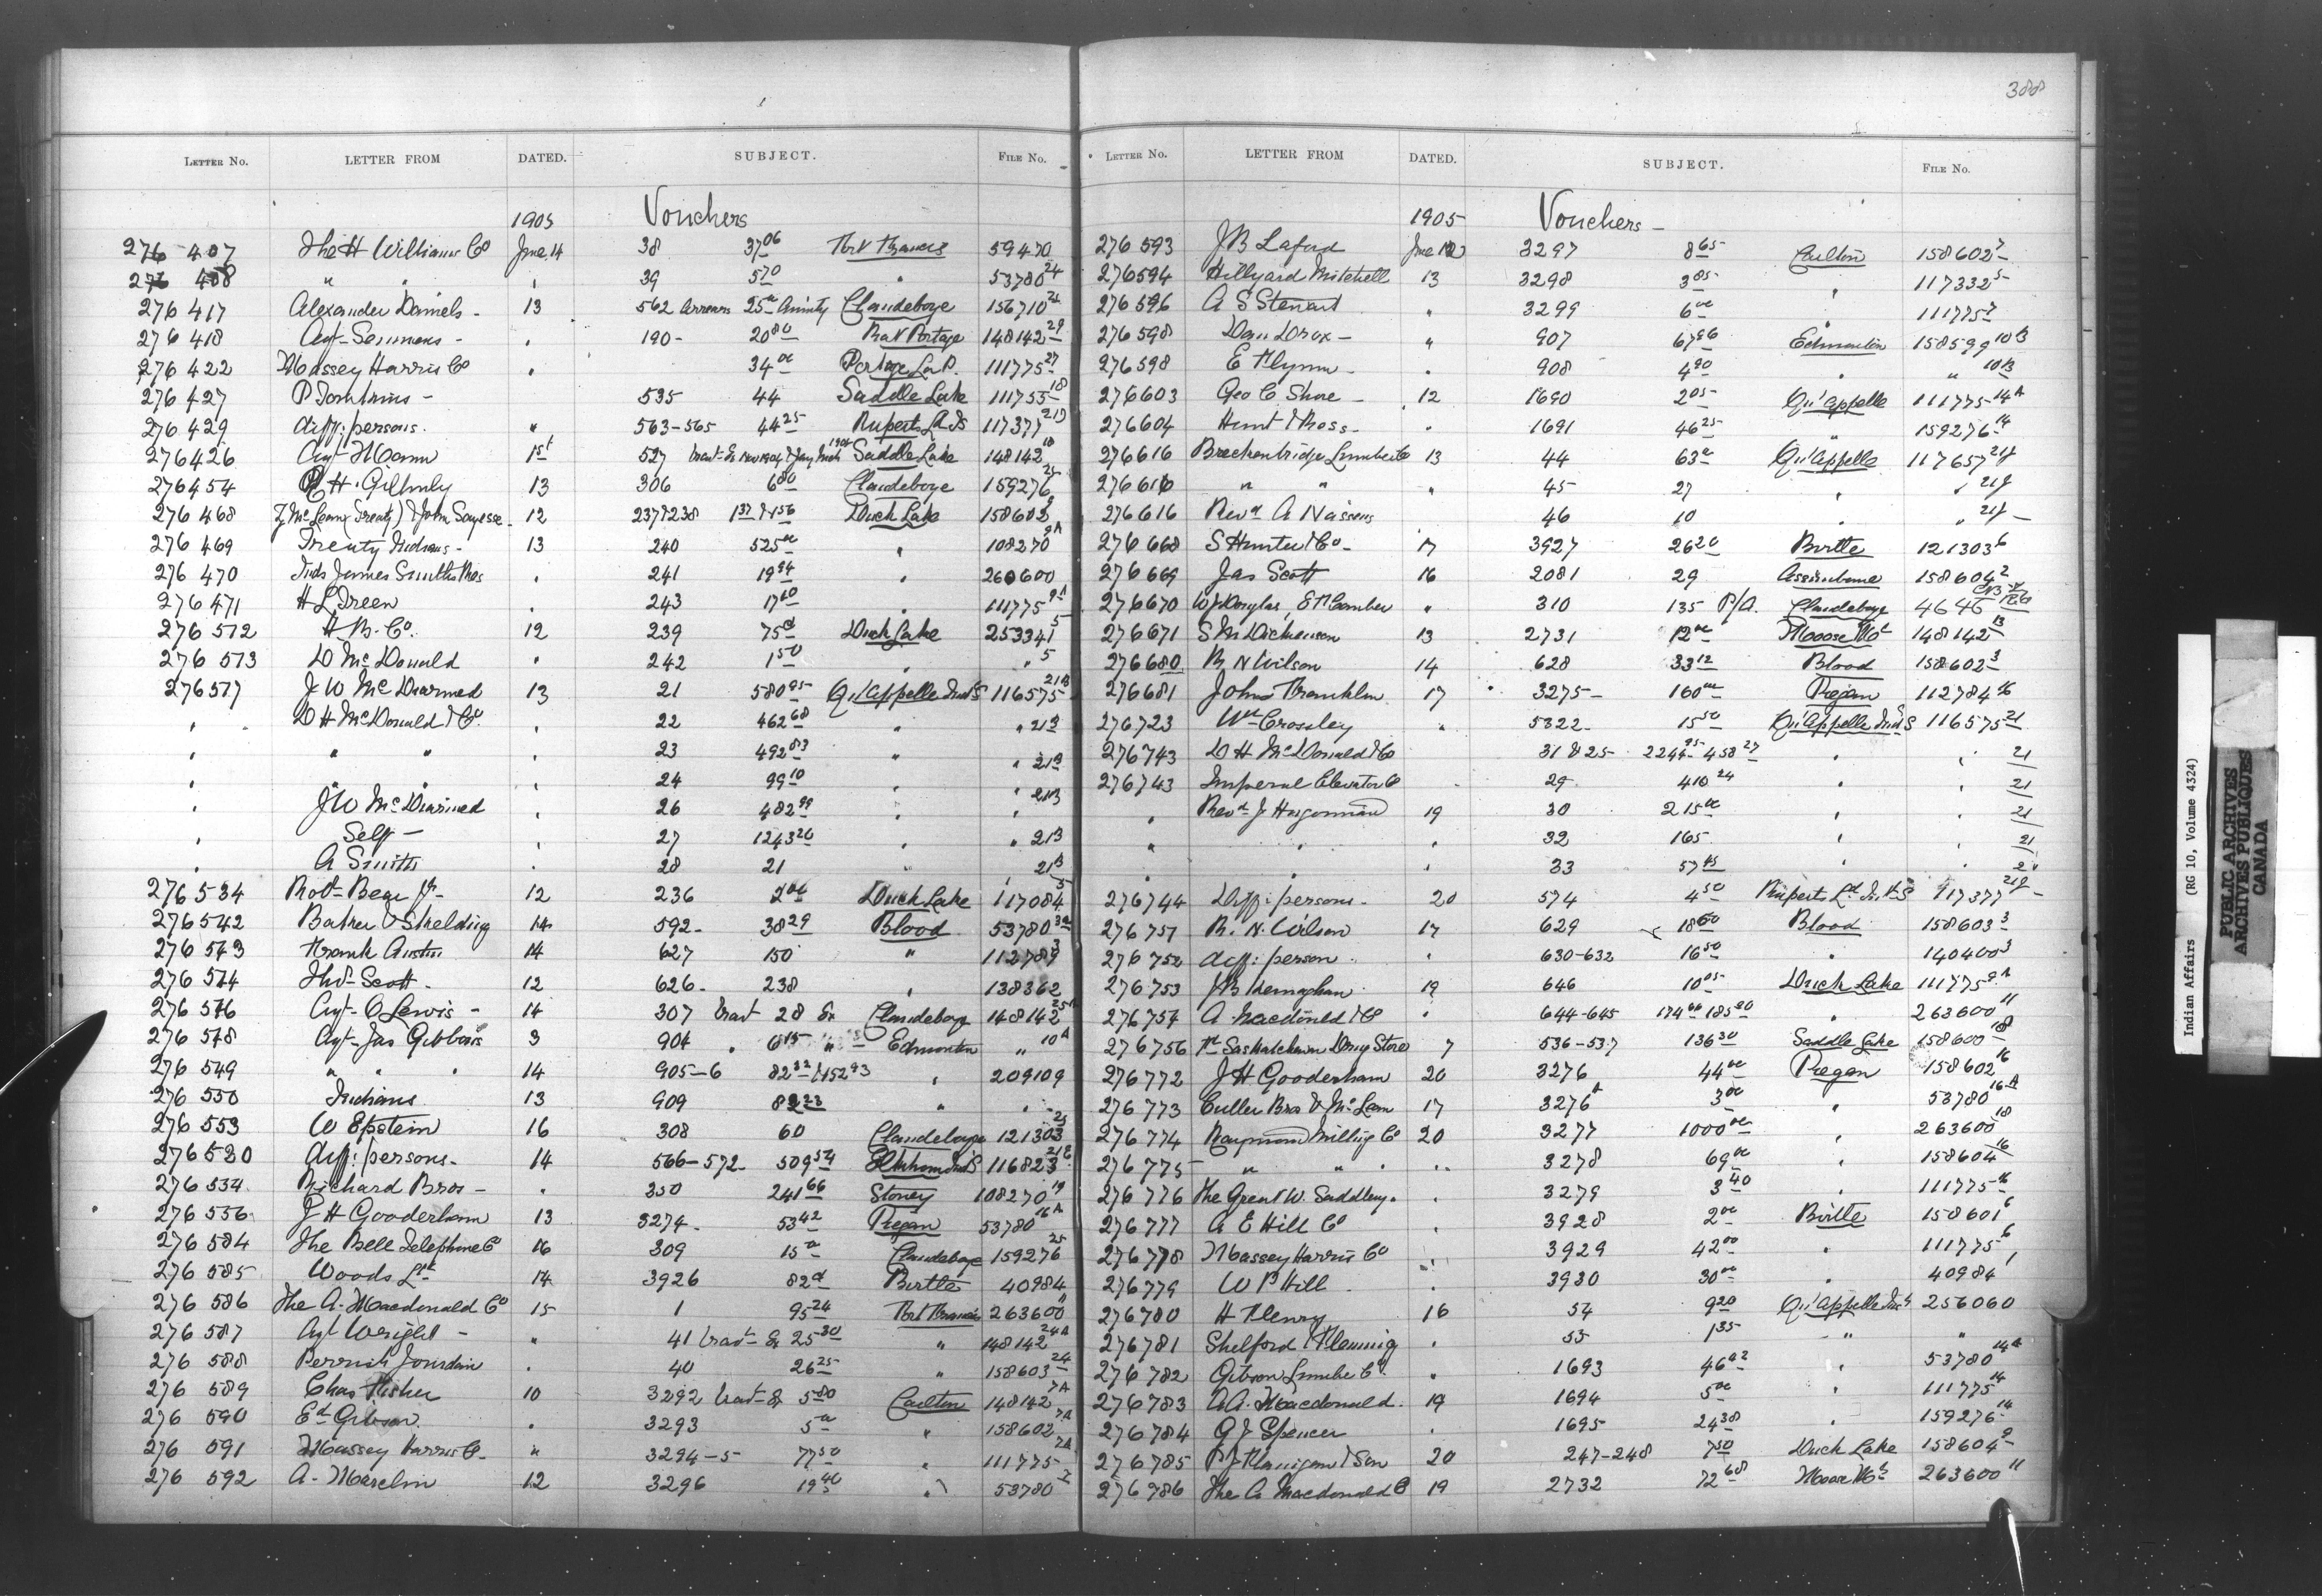 388
LETTER No. LETTER FROM DATED. SUBJECT. FILE No.
1905 Vouchers
276 407 The H Williams Co June 14 38 37 06 Fort Francis 59470
276 408 " " " 39 5 70 " 53780 24
276 417 Alexander Daniels - 13 562 Arrears 25 00 Annuity Clandeboye 156710 24
276 418 Agt Semmens - " 190 - 20 80 Rat Portage 148142 29
276 422 Massey Harris Co " 34 00 Portage La P. 111775 27
276 427 P Tomkins - 535 44 Saddle Lake 111755 18
276 429 diff: persons. " 563-565 44 25 Ruperts Ld IS 117377 21J
276426 Agt Mann 15t 527 Saddle Lake 148142 18
276454 H. Gilhuly 13 306 6 80 Clandeboye 159276 25
276 468 12 237 & 238 Duck Lake 158602
276 469 Treaty Indians - 13 240 525 00 " 108270 9A
276 470 Inds James Smiths Res " 241 19 94 " 260600
276 471 " 243 17 60 " 111775 9A
276 512 H B. Co. 12 239 75 Duck Lake 253341 5
276 513 D McDonald " 242 1 50 " " 5
276517 J W McDiarmed 13 21 580 95 Qu'Appelle Ind S 116575 21B
" D H McDonald & Co. " 22 462 68 " " 21B
" " " " 23 492 83 " " 21B
" " " " 24 99 10 " " 21B
" J W McDiarmed " 26 482 99 " "
" Self - " 27 1243 20 " 21B
" A Smith " 28 21 " 21B
276 534 Robt Bear Jr - 12 236 2 00 Duck Lake 117084 5
276542 Baker & Skelding 14 592 - 38 29 Blood 53780
276 543 Frank Austin 14 627 150 " 112789 3
276 544 Thos Scott - 12 626 - 238 " 138362
276 546 Agt O Lewis - 14 307 trav 28 Ex Clandeboye 148142 25A
276 548 Agt Jas Gibbons 3 904 " 6 15 " Edmonton " 10A
276 549 " " " 14 905-6 82 32 & 152 93 " 209109
276 550 Indians 13 909 82 23 " "
276 553 W Epstein 16 308 60 Clandeboye 121303 25
276520 diff: persons - 14 566-572 - 509 54 Elkhorn Ind S 116823 21E
276 534 Richard Bros - " 350 241 66 Stoney 108270 19
276 536 J H Gooderham 13 3274 - 53 42 Piegan 53780 16A
276 584 The Bell Telephone Co 16 309 15 00 Clandeboye 159276 25
276 585 Woods Ltd 14 3926 82 Birtle 40984
276 586 The A. Macdonald Co 15 1 95 24 Fort Francis 263600 11
276 587 Agt Wright - " 41 trav Ex 25 30 " 148142 24A
276 588 Jourdain " 40 26 25 " 158603 24
276 589 Chas Fisher 10 3292 trav Ex 5 80 Carlton 148142 7A
276 590 Ed Gibson " 3293 5 00 " 158602 7A
276 591 Massey Harris Co - " 3294-5 77 50 " 111775 7A
276 592 A. Marcelin 12 3296 19 40 " 53780 7
LETTER No. LETTER FROM DATED. SUBJECT. FILE No.
1905 Vouchers -
276 593 J B Lafond June 12 3297 8 65 Carlton 158602 7
276594 Hillyard Mitchell 13 3298 3 85 " 117332 5
276 596 A S Stewart " 3299 6 00 " 111775 7
276 598 Dan Drox - " 907 67 96 Edmonton 158599 10B
276598 E Flynn - " 908 4 90 " " 10B
276603 Geo C Shore - 12 1690 2 05 Qu'Appelle 111775 14A
276604 Hunt & Ross - " 1691 46 25 " 159276 14
276616 Breckenbridge Lumber Co 13 44 63 00 Qu'Appelle 117657 21J
276616 " " " 45 27 " " 21J
276616 Revd A Naessens 46 10 " " 21J
276 668 S Hunter & Co - 17 3927 26 20 Birtle 121303 6
276 669 Jas Scott 16 2081 29 Assiniboine 158604 2
276670 W J Douglas, " 310 135 P/A. Clandeboye 4646
276671 S M Dickenson 13 2731 12 00 Moose Mt 148142 13
276680 R N Wilson 14 628 33 12 Blood 158602 3
276681 John Franklin 17 3275 - 160 00 Piegan 112784 16
276723 Wm Crossley " 5322 - 15 50 Qu'Appelle Ind S 116575 21
276743 D H McDonald & Co 31 & 25 2244 95 - 458 27 " " 21
276743 Imperial Elevator Co 29 410 24 " " 21
" Revd J Hugonnard 19 30 215 00 " 21
" " " 32 165 " 21
" " " 33 57 45 " "
276744 Diff: persons - 20 574 4 50 Ruperts Ld Ind S 117377 21J
276 751 R. N. Wilson 17 629 18 60 Blood 158603 3
276 752 diff: person " 630-632 16 50 " 140400 3
276 753 J B Kernaghan 19 646 10 05 Duck Lake 111775 9A
276754 A. Macdonald & Co " 644-645 174 66 185 20 " 263600 11
276756 Saskatchewan Drug Store 7 536-537 136 30 Saddle Lake 158600 18
276772 J H Gooderham 20 3276 44 00 Piegan 158602 16
276 773 Culler Bros & McLean 17 3276 A 3 00 " 53780 16A
276 774 Raymond Milling Co 20 3277 1000 00 " 263600 18
276 775 " " " 3278 69 00 " 158604 16
276 776 The Great W. Saddlery. " 3279 3 40 " 111775 16
276 777 A E Hill Co " 3928 2 00 Birtle 158601 6
276778 Massey Harris Co " 3929 42 00 " 111775 6
276779 W P Hill " 3930 30 00 " 40984
276780 H Fleury 16 54 9 20 Qu'Appelle Ind S 256060
276781 Shelford & Fleming " 55 1 35 " "
276 782 Gibson Lumber Co. " 1693 46 92 " 53780 14A
276 783 A A. Macdonald. 19 1694 5 00 " 111775 14
276 784 G J Spencer " 1695 24 38 " 159276 14
276785 P J Flanigan & Son 20 247-248 7 50 Duck Lake 158604 9
276 786 The A Macdonald Co 19 2732 72 68 Moose Mt 263600 11
Indian Affairs (RG 10, Volume 4324)
PUBLIC ARCHIVES
ARCHIVES PUBLIQUES
CANADA